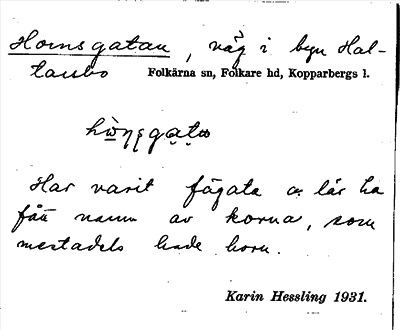 Hornsgatan, väg i byn Hal-
tarsbo Folkärna sn, Folkare hd, Kopparbergs l.
Har varit fägata o. lär ha
fått namn av korna, som
mestadels hade horn.
Karin Hessling 1931.